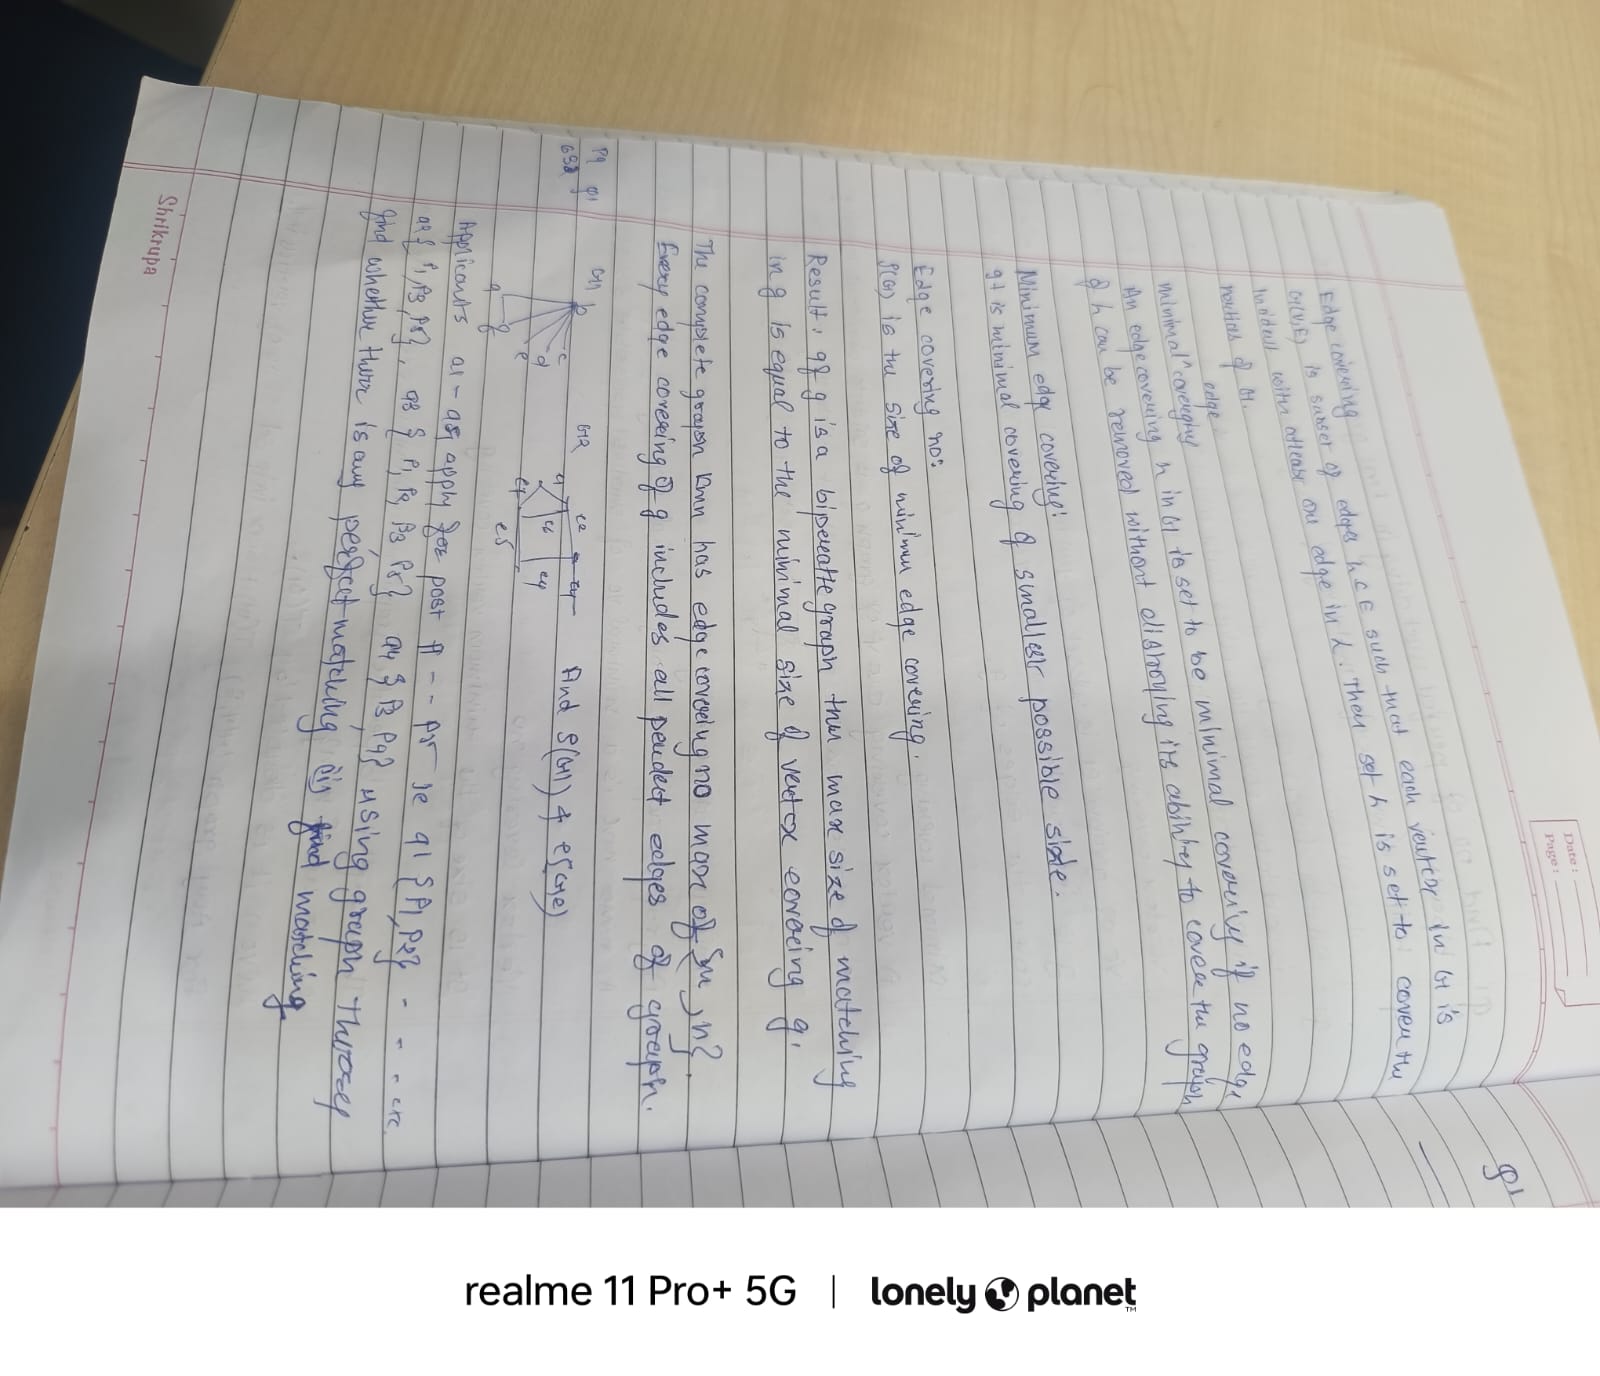 Date:
Page:
Edge covering
G(V,E) is subset of edges h C E such that each veutex in G is
incident with atleast one edge in h. Then set h is set to coveu the
of G.
edge
minimal ^
An edge coveuing h in G is set to be minimal covering if no edge
of h can be removed without distroying its ability to covee the graph
Minimum edge covering:
It is minimal covering of smallest possible size.
Edge covering no:
ρ(G) is the size of minimum edge covering.
Result: If g is a graph then max size of matching
in g is equal to the minimal size of vertex covering g.
The complete graph Kmn has edge covering no max of {m, n}.
Every edge covering of g includes all pendect edges of graph.
Pg Q1
652
G1
b
c
d
e
a f
G2
e2
e6 e4
e7
e5
Find ρ(G1) &
Applicants a1 - a5 apply for post P1 -- P5 ie a1 {P1, P2} - - - etc.
a2 { P1, P3, P5}, a3 { P1, P2, P3, P5} a4 { P3, P4} using graph theory
find whether there is any perfect matching (ii) find matching
Shrikrupa
Q1
realme 11 Pro+ 5G | lonely planet™